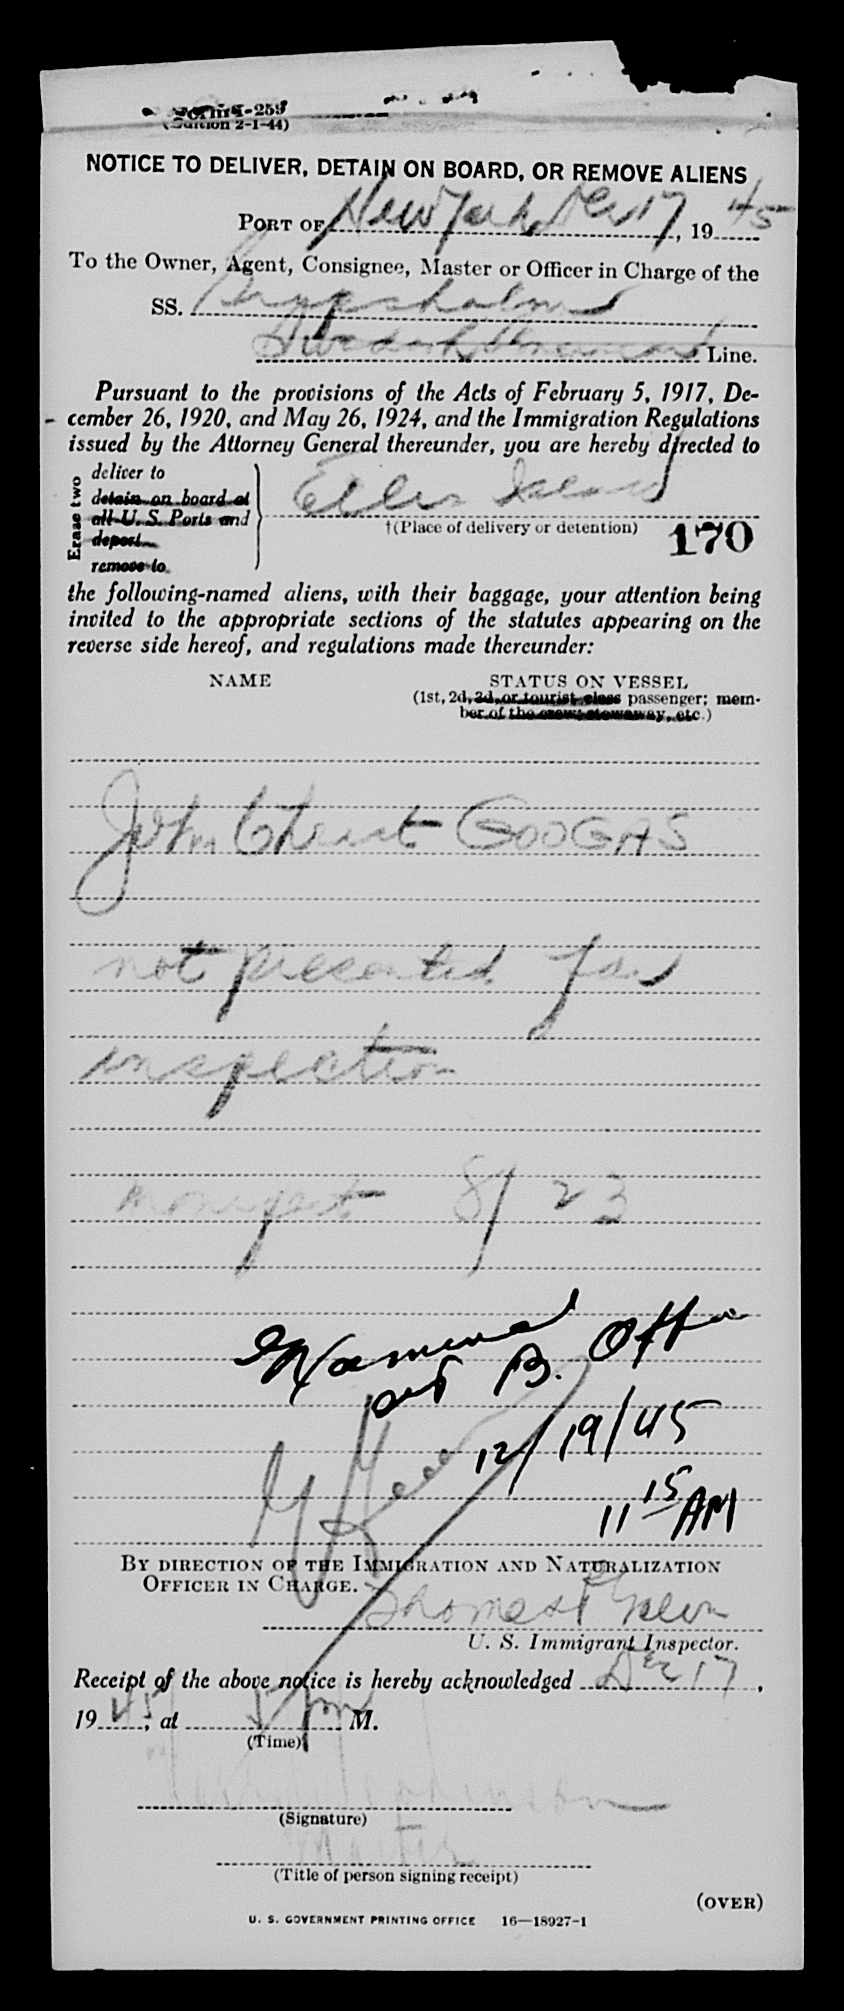 Form I-259
(Edition 2-1-44)
NOTICE TO DELIVER, DETAIN ON BOARD, OR REMOVE ALIENS
PORT OF New York, Dec 17, 1945
To the Owner, Agent, Consignee, Master or Officer in Charge of the
SS. Gripsholm
Swedish American Line.
Pursuant to the provisions of the Acts of February 5, 1917, De-
cember 26, 1920, and May 26, 1924, and the Immigration Regulations
issued by the Attorney General thereunder, you are hereby directed to
Erase two
deliver to
detain on board at
all U. S. Ports and
deport
remove to
Ellis Island
†(Place of delivery or detention)
170
the following-named aliens, with their baggage, your attention being
invited to the appropriate sections of the statutes appearing on the
reverse side hereof, and regulations made thereunder:
NAME STATUS ON VESSEL
(1st, 2d, 3d, or tourist class passenger; mem-
ber of the crew; stowaway, etc.)
John Christ GOOGAS
not presented for
inspection
manifest 8/23
Examined
at B. Office
12/19/45
11 15 AM
BY DIRECTION OF THE IMMIGRATION AND NATURALIZATION
OFFICER IN CHARGE.
Thomas
U. S. Immigrant Inspector.
Receipt of the above notice is hereby acknowledged Dec 17,
1945, at 5 pm M.
(Time)
(Signature)
Master
(Title of person signing receipt)
(OVER)
U. S. GOVERNMENT PRINTING OFFICE 16—18927-1